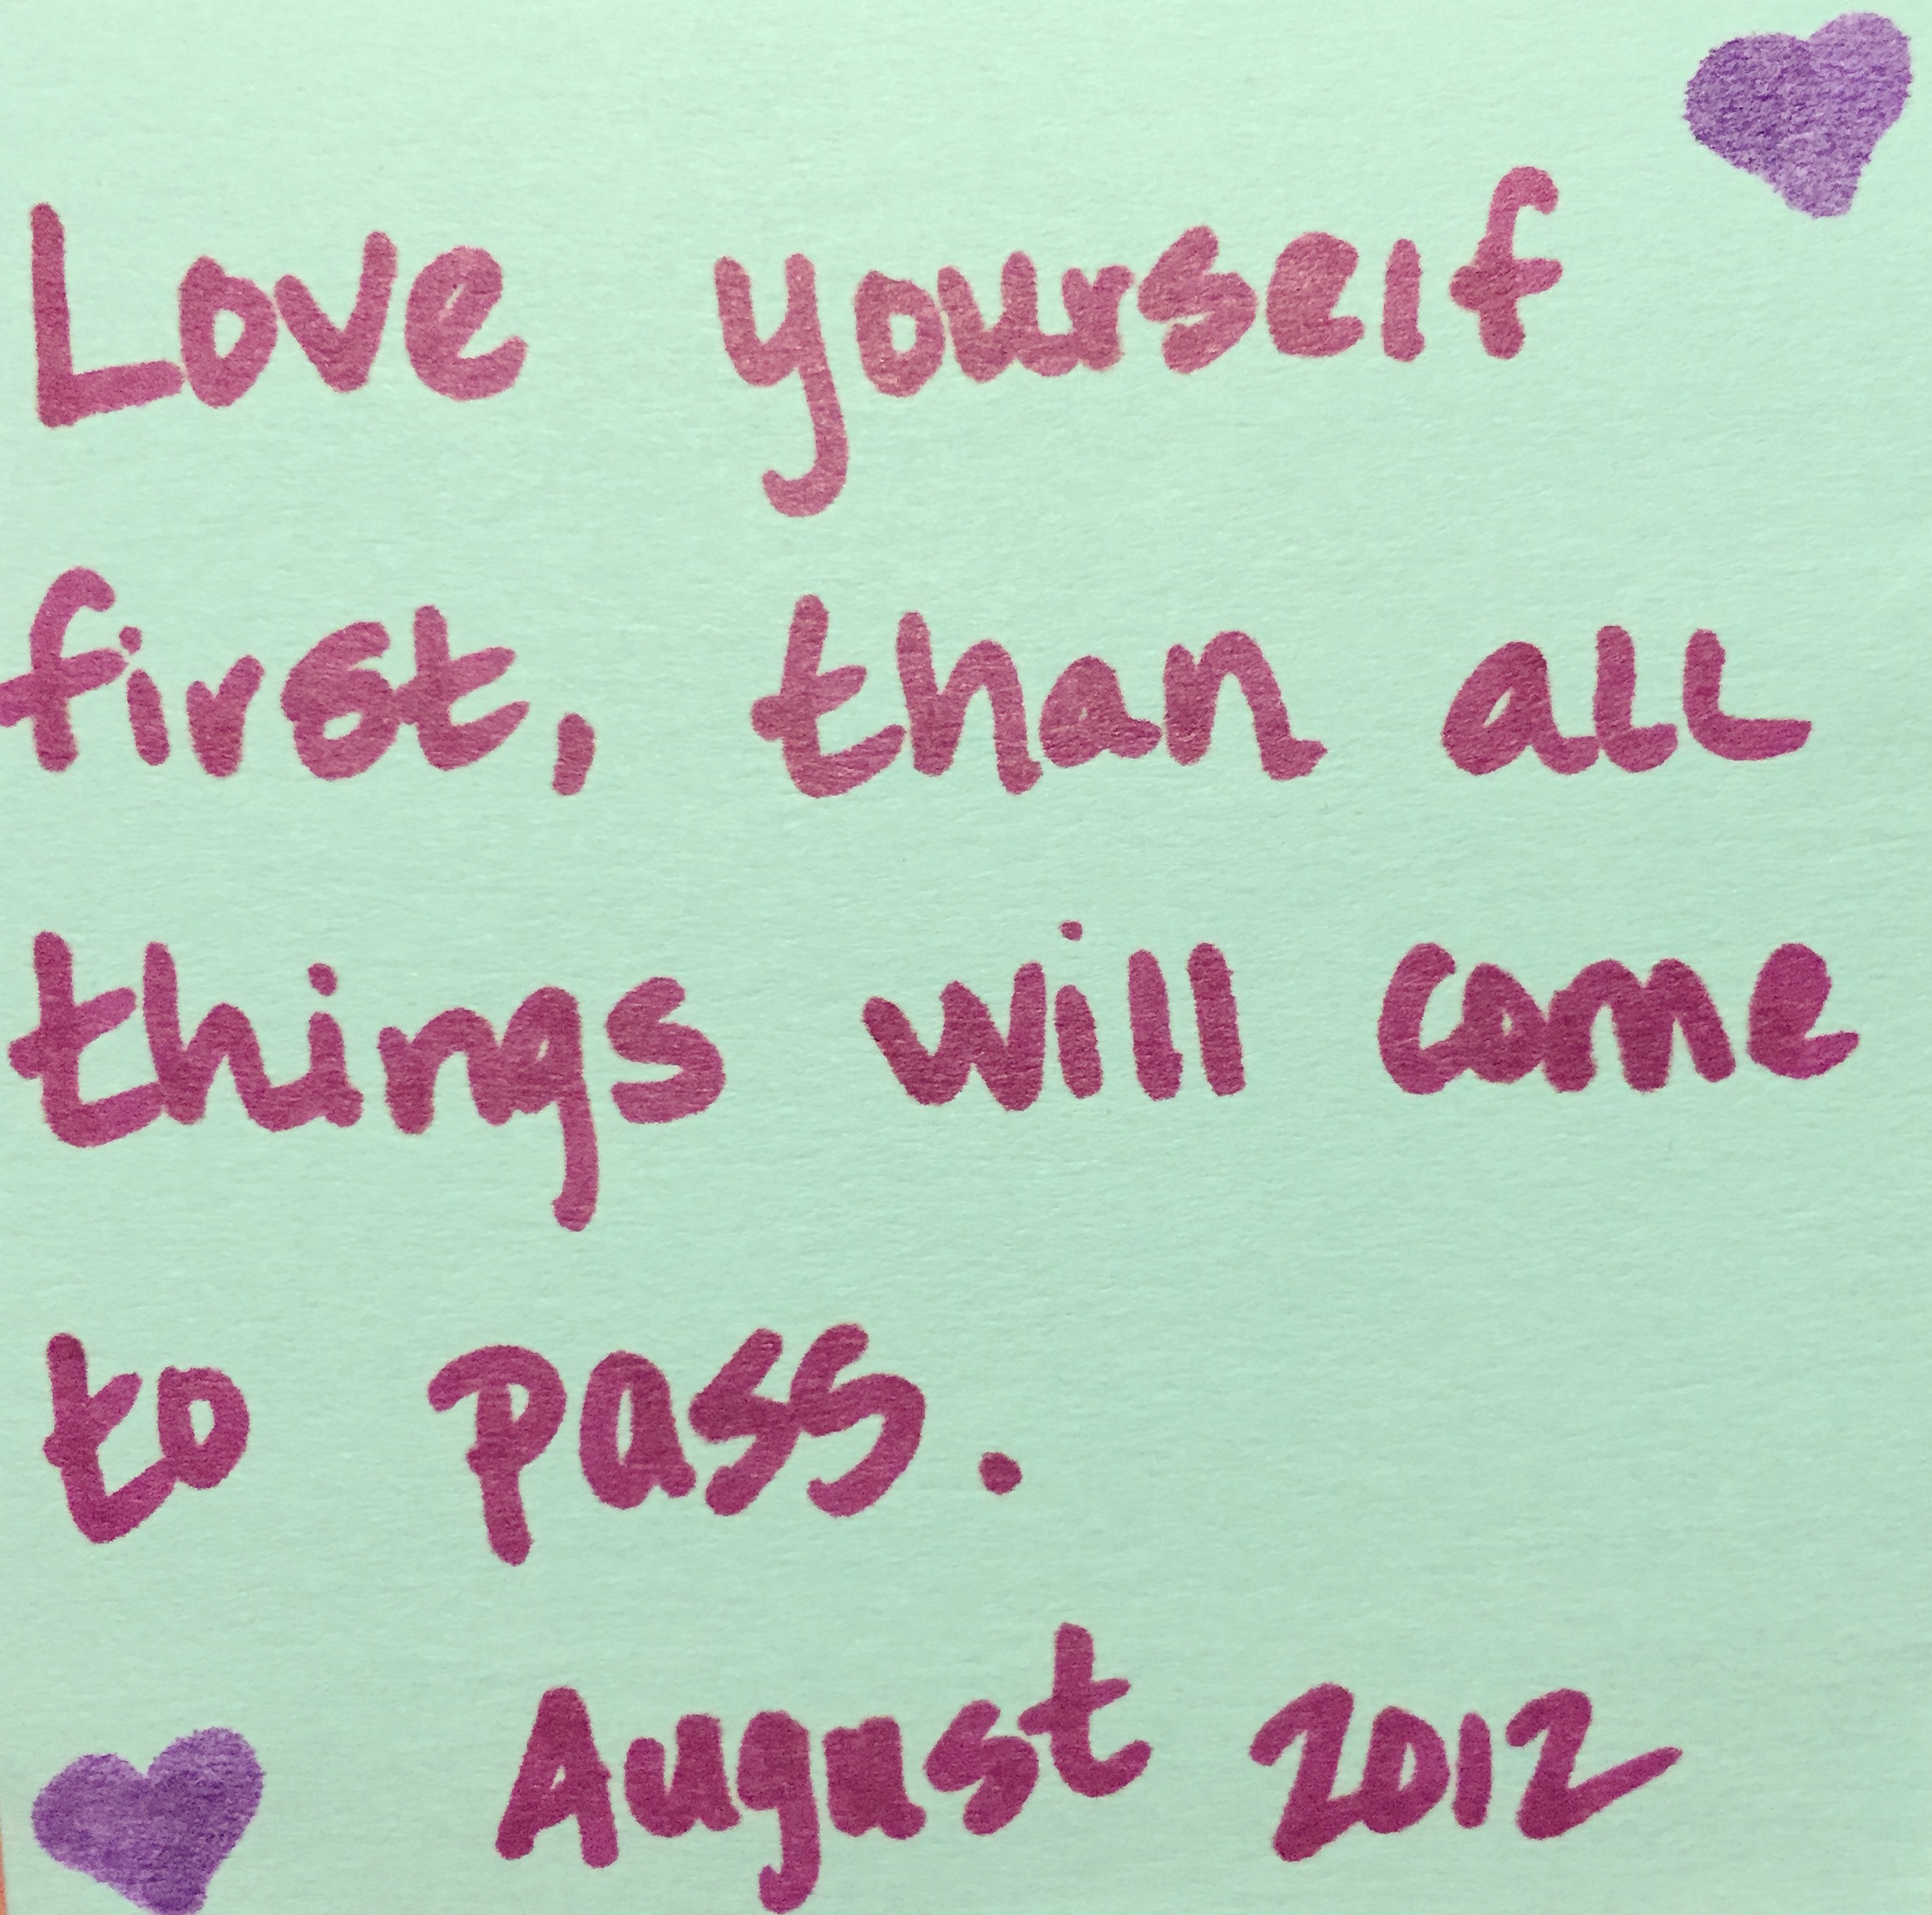 Love yourself
first, than all
things will come
to pass.
August 2012